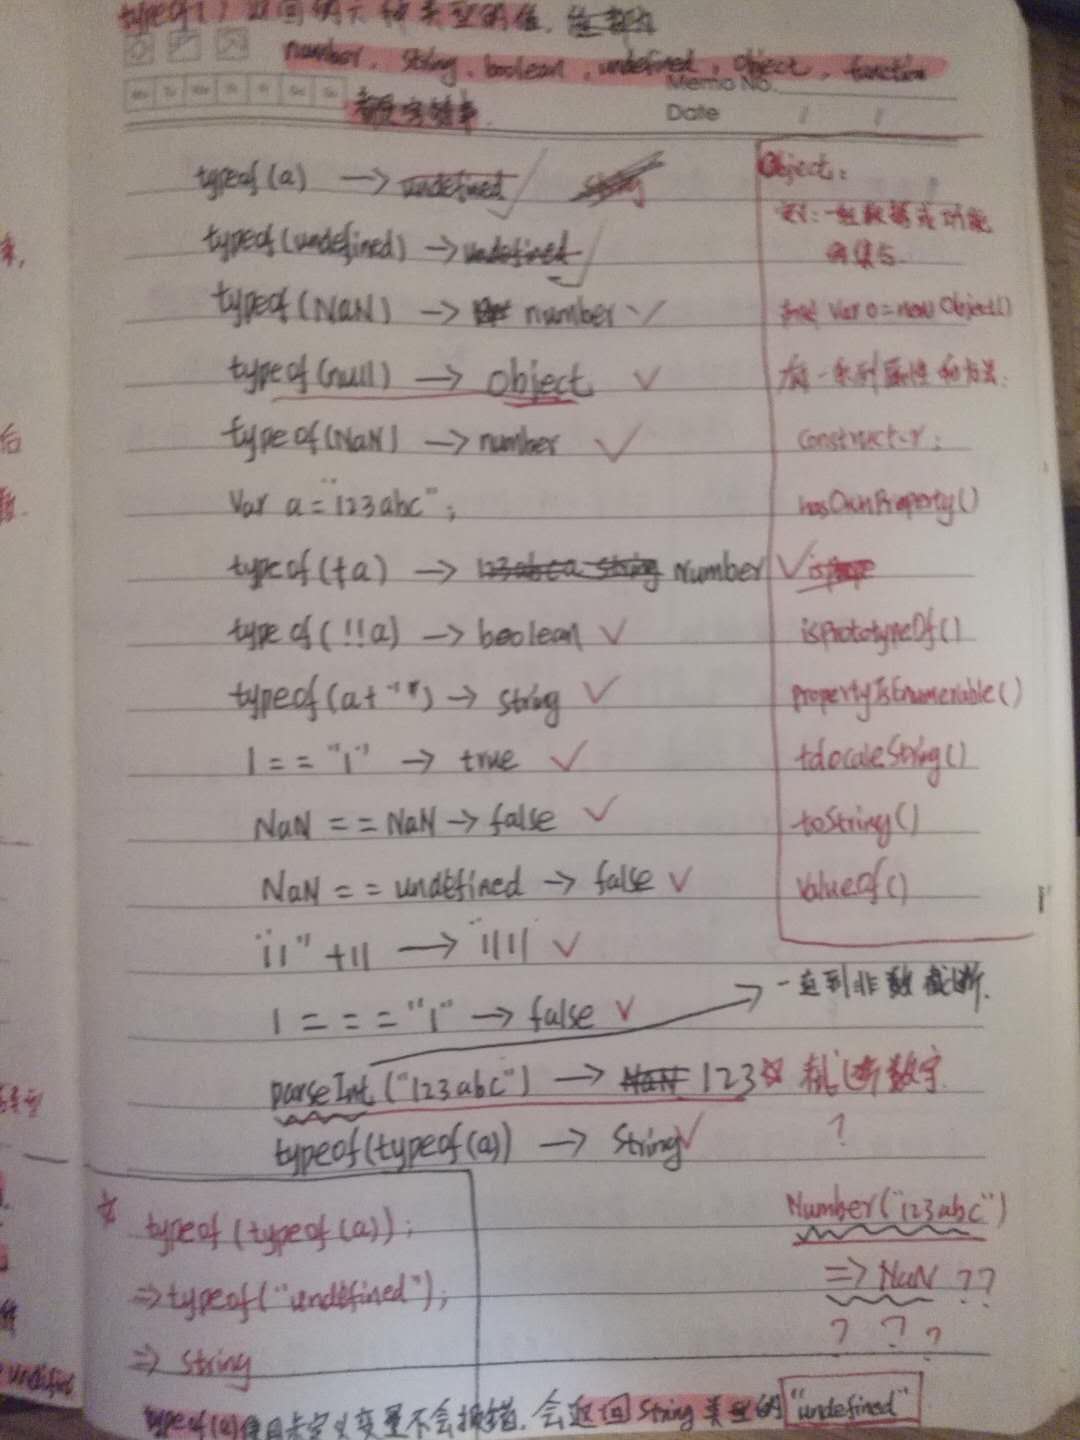 typeof() 返回的六种类型的值,
number, string, boolean, undefined, object, function
Memo No.
Date / /
typeof(a) → undefined
typeof(undefined) → undefined
typeof(NaN) → number
typeof(null) → object
typeof(NaN) → number
Var a = "123abc";
typeof(+a) → 123abca string Number
typeof(!!a) → boolean
typeof(a+"") → string
1 == "1" → true
NaN == NaN → false
NaN == undefined → false
"11" + 11 → "1111
1 === "1" → false
parseInt("123abc") → NaN 123
typeof(typeof(a)) → String
Object:
一组数据或功能
的集合
var o = new Object()
有一系列属性和方法.
Constructor:
hasOwnProperty()
isPrototypeOf()
propertyIsEnumerable()
toLocaleString()
toString()
ValueOf()
一直到非数截断.
数字
?
typeof(typeof(a));
=> typeof("undefined");
=> string
Number("123abc")
=> NaN ??
? ? ?
typeof(a)使用未定义变量不会报错, 会返回String类型的"undefined"